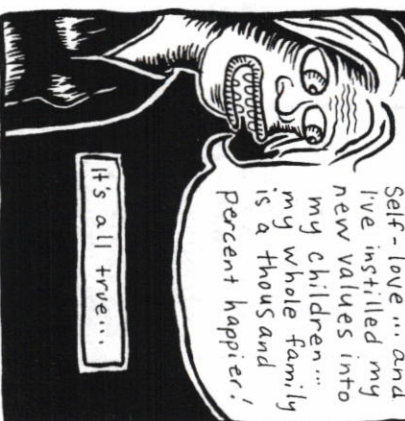 Self-love... and
I've instilled my
new values into
my children...
my whole family
is a thousand
percent happier!
It's all true...